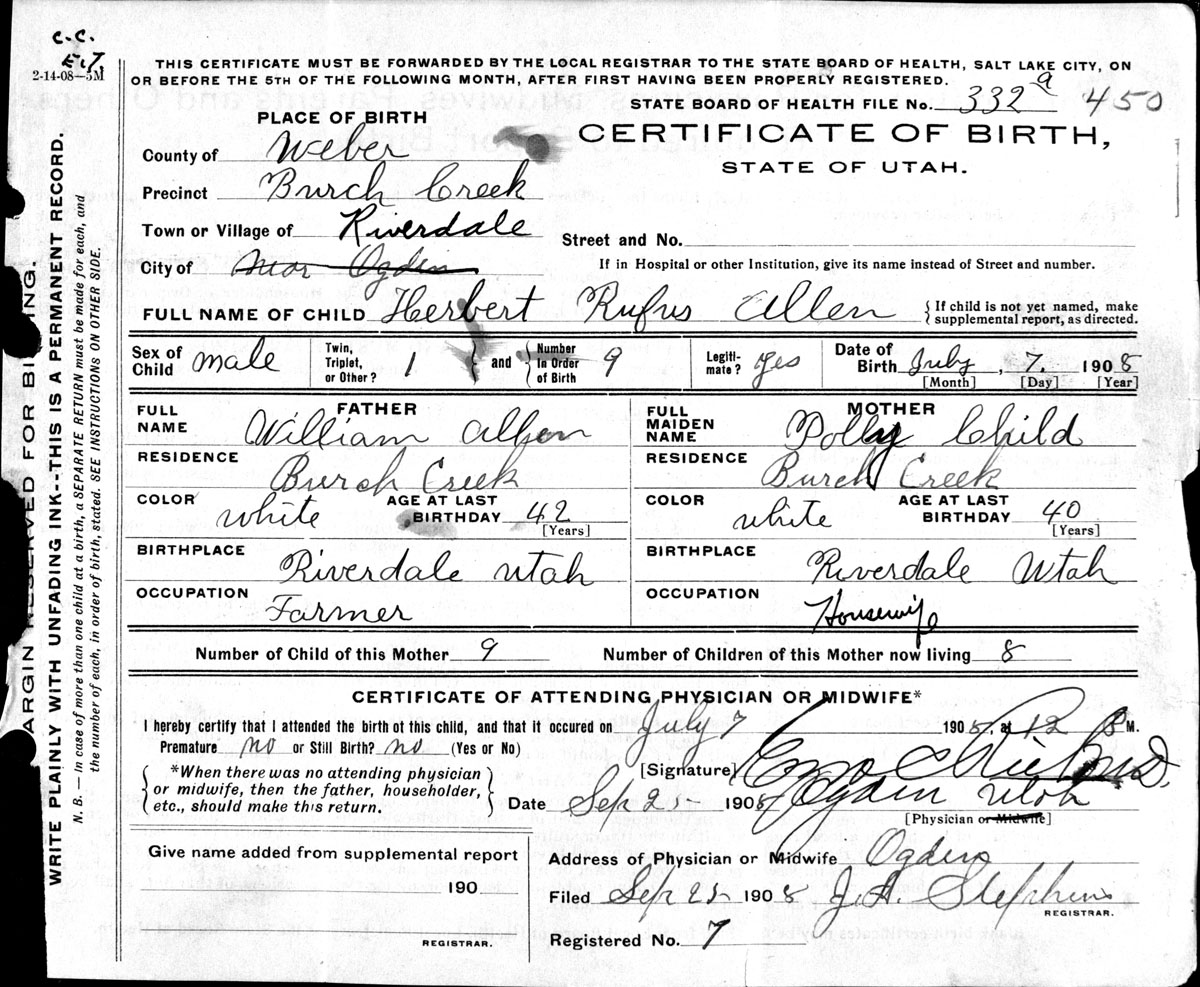 C.C.
E.17.
2-14-08—5M
THIS CERTIFICATE MUST BE FORWARDED BY THE LOCAL REGISTRAR TO THE STATE BOARD OF HEALTH, SALT LAKE CITY, ON
OR BEFORE THE 5TH OF THE FOLLOWING MONTH, AFTER FIRST HAVING BEEN PROPERLY REGISTERED.
STATE BOARD OF HEALTH FILE No. 332 a 450
PLACE OF BIRTH
CERTIFICATE OF BIRTH,
STATE OF UTAH.
County of Weber
Precinct Burch Creek
Town or Village of Riverdale
Street and No.
City of Near Ogden
If in Hospital or other Institution, give its name instead of Street and number.
FULL NAME OF CHILD Herbert Rufus Allen
{If child is not yet named, make supplemental report, as directed.
Sex of Child male
Twin, Triplet, or Other? 1 } and { Number In Order of Birth 9
Legitimate? Yes
Date of Birth July, 7. 1908
[Month] [Day] [Year]
FATHER
FULL NAME William Allen
RESIDENCE Burch Creek
COLOR white AGE AT LAST BIRTHDAY 42
[Years]
BIRTHPLACE Riverdale Utah
OCCUPATION Farmer
MOTHER
FULL MAIDEN NAME Polly Child
RESIDENCE Burch Creek
COLOR white AGE AT LAST BIRTHDAY 40
[Years]
BIRTHPLACE Riverdale Utah
OCCUPATION Housewife
Number of Child of this Mother 9 Number of Children of this Mother now living 8
CERTIFICATE OF ATTENDING PHYSICIAN OR MIDWIFE*
I hereby certify that I attended the birth of this child, and that it occured on July 7 1908, at 12 P M.
Premature no or Still Birth? no (Yes or No)
{*When there was no attending physician
or midwife, then the father, householder,
etc., should make this return.}
[Signature] M.D.
Date Sep 25 1908 Ogden Utah
[Physician or Midwife]
Give name added from supplemental report
190
REGISTRAR.
Address of Physician or Midwife Ogden
Filed Sep 25 1908 J.A. Stephens
REGISTRAR.
Registered No. 7
MARGIN RESERVED FOR BINDING.
WRITE PLAINLY WITH UNFADING INK--THIS IS A PERMANENT RECORD.
N. B.—In case of more than one child at a birth, a SEPARATE RETURN must be made for each, and
the number of each, in order of birth, stated. SEE INSTRUCTIONS ON OTHER SIDE.